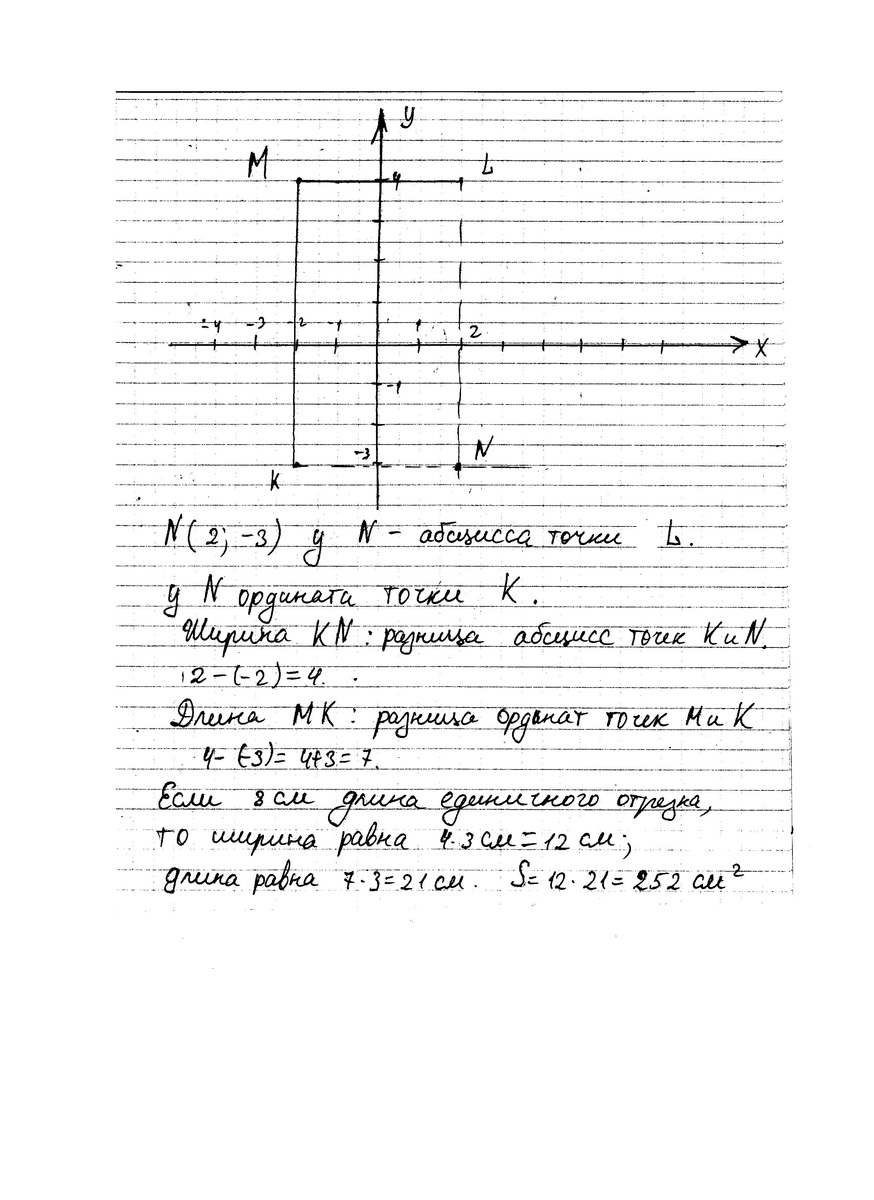 y
M L
4
-4 -3 -2 -1 1 2
X
-1
-3 N
K
N(2; -3) у N - абсцисса точки L.
у N ордината точки K.
Ширина KN: разница абсцисс точек K и N.
2-(-2)=4.
Длина MK: разница ординат точек M и K
4-(-3)=4+3=7.
Если 8 см длина единичного отрезка,
то ширина равна 4·3 см=12 см;
длина равна 7·3=21 см. S=12·21=252 см²